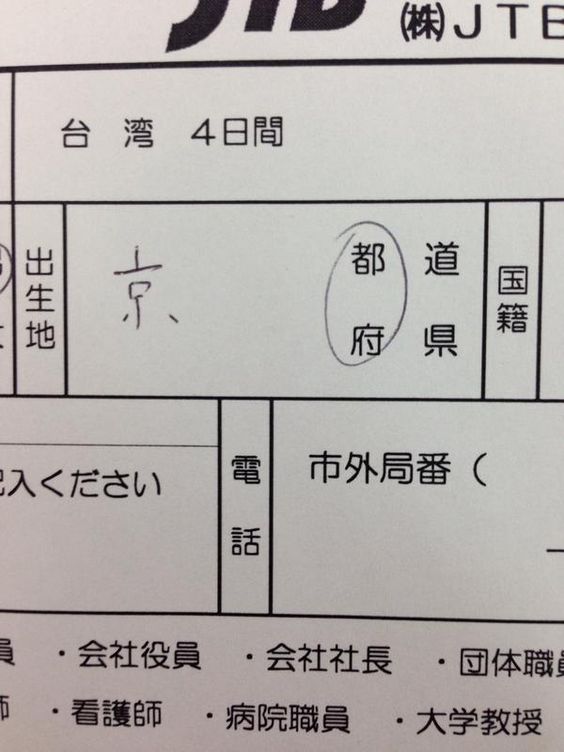 JTB (株)JTB
台湾 4日間
出生地
京
都道
府県
国籍
入ください
電話
市外局番(
員 ・会社役員 ・会社社長 ・団体職員
師 ・看護師 ・病院職員 ・大学教授